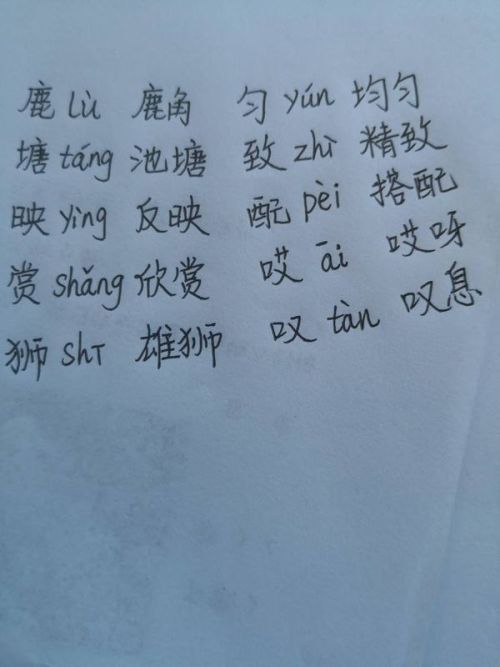 鹿 lù 鹿角 匀 yún 均匀
塘 táng 池塘 致 zhì 精致
映 yìng 反映 配 pèi 搭配
赏 shǎng 欣赏 哎 āi 哎呀
狮 shī 雄狮 叹 tàn 叹息